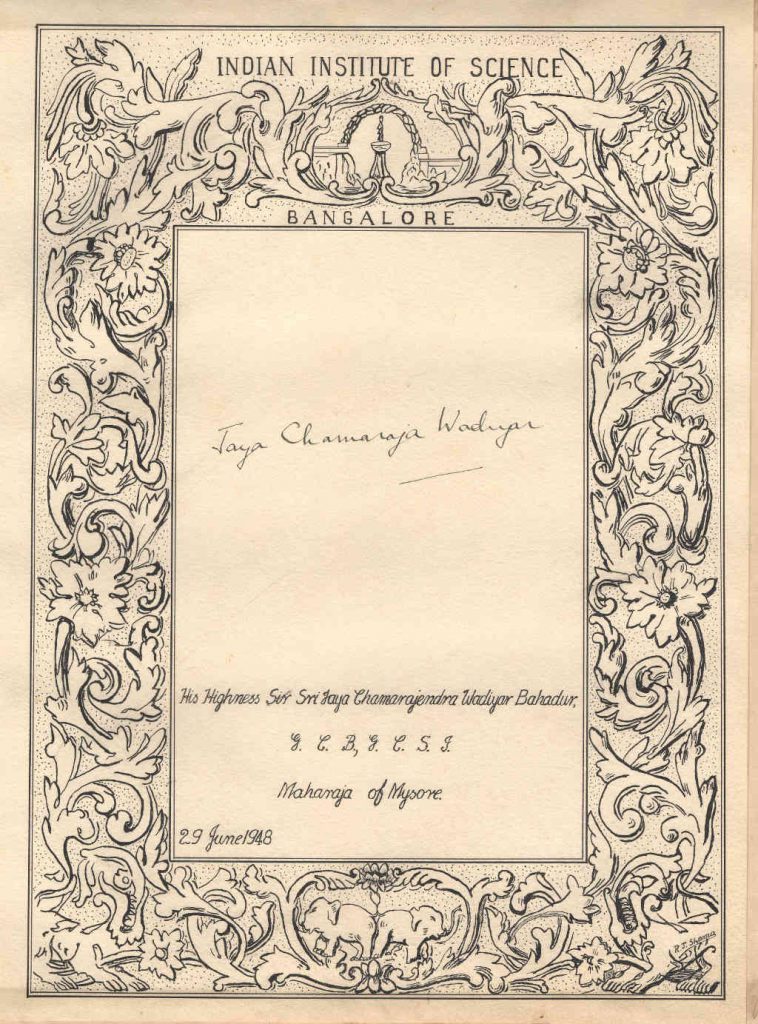 INDIAN INSTITUTE OF SCIENCE
BANGALORE
Jaya Chamaraja Wadiyar
His Highness Sir Sri Jaya Chamarajendra Wadiyar Bahadur,
G. C. B, G. C. S. I.
Maharaja of Mysore.
29 June 1948